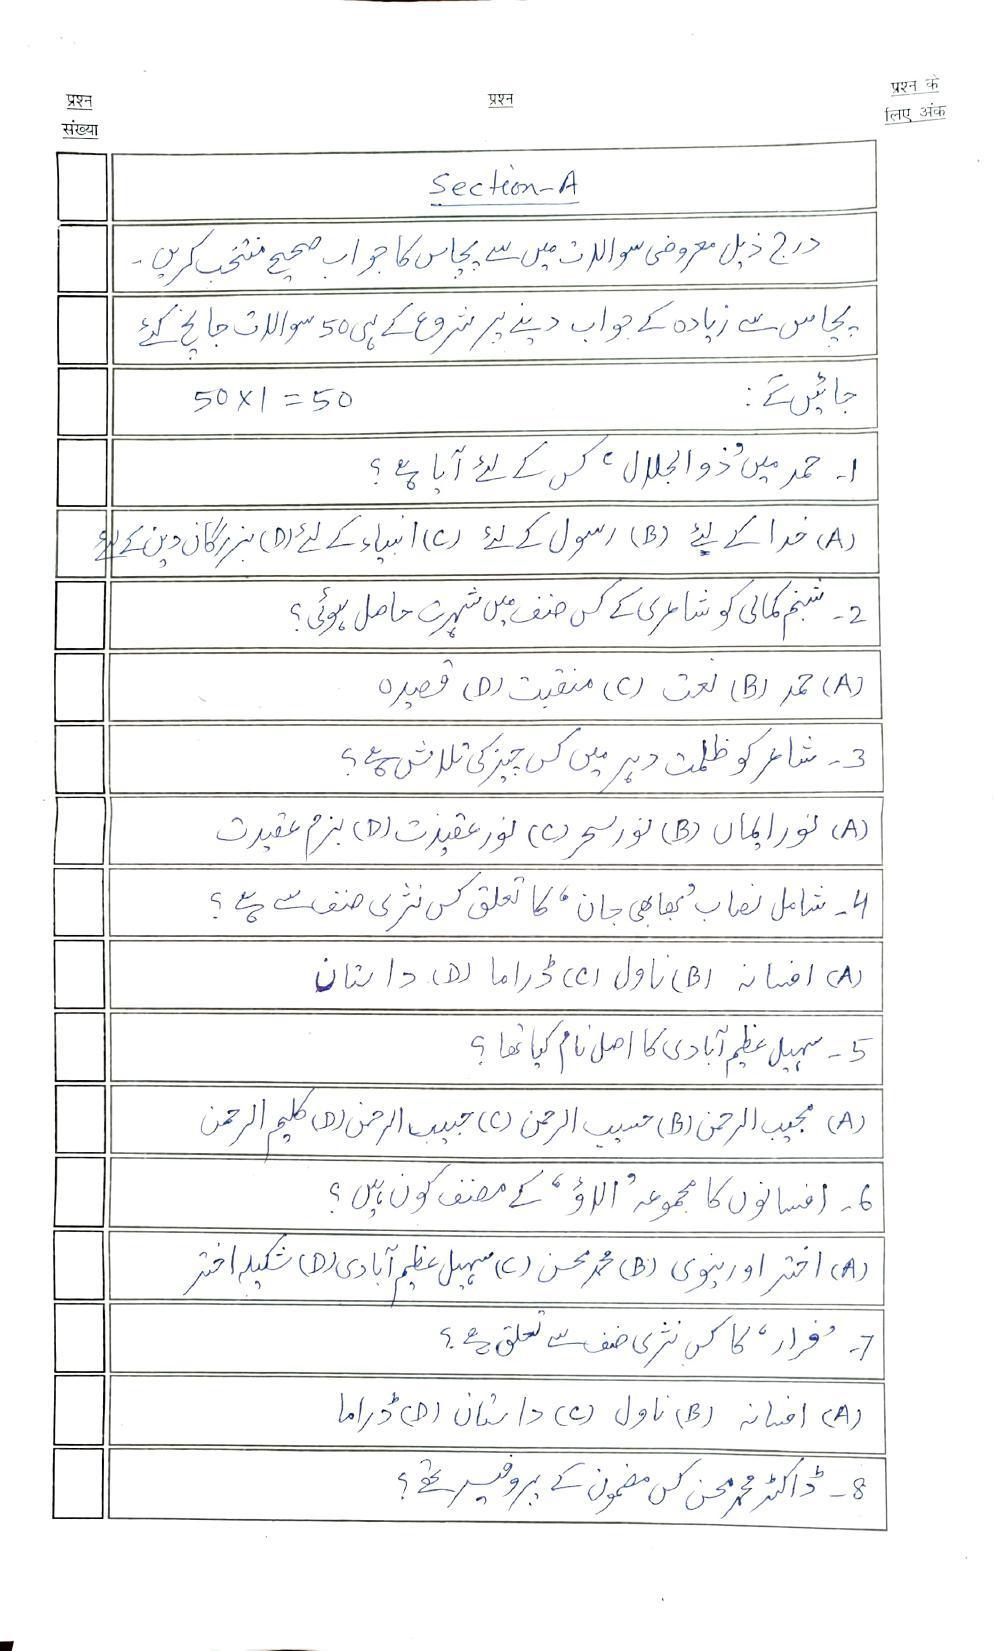 प्रश्न संख्या
प्रश्न
प्रश्न के लिए अंक
Section-A
درج ذیل معروضی سوالات میں سے پچاس کا جواب صحیح منتخب کریں۔
پچاس سے زیادہ کے جواب دینے پر شروع کے ہی 50 سوالات جانچ کئے
جائیں گے: 50×1=50
1۔ حمد میں ’ذوالجلال‘ کس کے لئے آیا ہے؟
(A) خدا کے لئے (B) رسول کے لئے (C) انبیاء کے لئے (D) بزرگان دین کے لئے
2۔ شبنم کمالی کو شاعری کے کس صنف میں شہرت حاصل ہوئی؟
(A) حمد (B) نعت (C) منقبت (D) قصیدہ
3۔ شاعر کو ظلمت دہر میں کس چیز کی تلاش ہے؟
(A) نور ایماں (B) نور سحر (C) نور عقیدت (D) بزم عقیدت
4۔ شامل نصاب ’بھابھی جان‘ کا تعلق کس نثری صنف سے ہے؟
(A) افسانہ (B) ناول (C) ڈراما (D) داستان
5۔ سہیل عظیم آبادی کا اصل نام کیا تھا؟
(A) مجیب الرحمن (B) حسیب الرحمن (C) حبیب الرحمن (D) کلیم الرحمن
6۔ افسانوں کا مجموعہ ’الاؤ‘ کے مصنف کون ہیں؟
(A) اختر اورینوی (B) محمد محسن (C) سہیل عظیم آبادی (D) شکیلہ اختر
7۔ ’فرار‘ کا کس نثری صنف سے تعلق ہے؟
(A) افسانہ (B) ناول (C) داستان (D) ڈراما
8۔ ڈاکٹر محمد محسن کس مضمون کے پروفیسر تھے؟